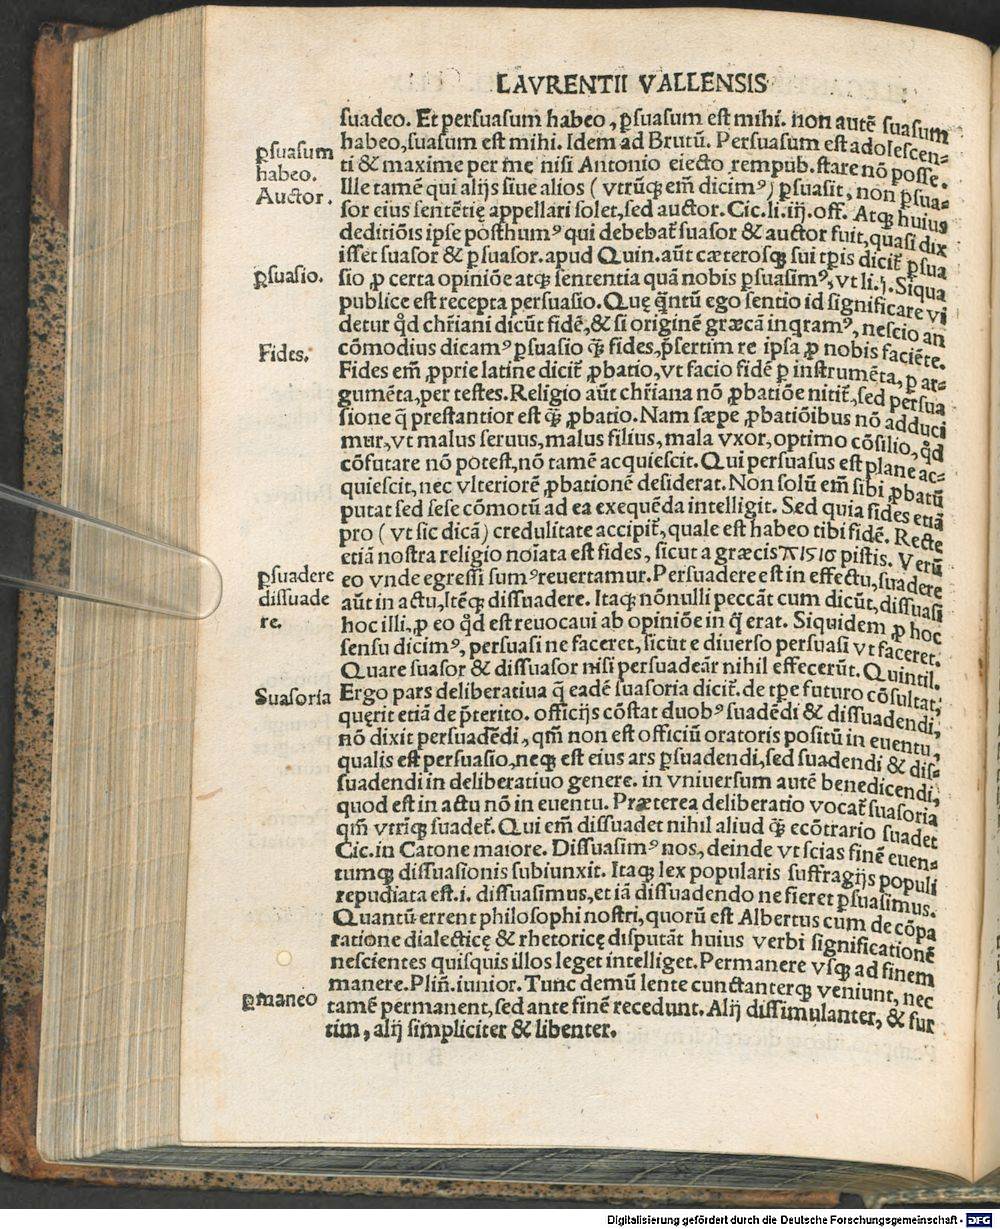 LAVRENTII VALLENSIS
suadeo. Et persuasum habeo, ꝑsuasum est mihi. non autē suasum
habeo, suasum est mihi. Idem ad Brutū. Persuasum est adolescen-
ti & maxime per me nisi Antonio eiecto rempub. stare nō posse.
Ille tamē qui alijs siue alios ( vtrūqꝫ em̄ dicimꝰ ) ꝑsuasit, non ꝑsua-
sor eius sentētię appellari solet, sed auctor. Cic. li. iij. off. Atqꝫ huius
deditiōis ipse posthumꝰ qui debebat̃ suasor & auctor fuit, quasi dix
isset suasor & ꝑsuasor. apud Quin. aūt cæterosqꝫ sui tꝑis dicit̃ ꝑsua
sio ꝓ certa opiniōe atqꝫ sententia quā nobis ꝑsuasimꝰ, vt li. j. Siqua
publice est recepta persuasio. Quę q̄ntū ego sentio id significare vi
detur qd̓ chr̄iani dicūt fidē, & si originē græcā inqramꝰ, nescio an
cōmodius dicamꝰ ꝑsuasio q̄ꝫ fides, p̄sertim re ipsa ꝓ nobis faciēte.
Fides em̄ ꝓprie latine dicit̃ ꝓbatio, vt facio fidē ꝑ instrumēta, ꝑ ar-
gumēta, per testes. Religio aūt chr̄iana nō ꝓbatiōe nitit̃, sed persua
sione q̄ prestantior est q̄ꝫ ꝓbatio. Nam sæpe ꝓbatiōibus nō adduci
mur, vt malus seruus, malus filius, mala vxor, optimo cōsilio, qd̓
cōfutare nō potest, nō tamē acquiescit. Qui persuasus est plane ac-
quiescit, nec vlteriorē ꝓbationē desiderat. Non solū em̄ sibi ꝓbatū
putat sed sese cōmotū ad ea exequēda intelligit. Sed quia fides etiā
pro ( vt sic dicā ) credulitate accipit̃, quale est habeo tibi fidē. Recte
etiā nostra religio noīata est fides, sicut a græcis πιστισ pistis. Verū
eo vnde egressi sumꝰ reuertamur. Persuadere est in effectu, suadere
aūt in actu, Itēqꝫ dissuadere. Itaqꝫ nōnulli peccāt cum dicūt, dissuasi
hoc illi, ꝓ eo qd̓ est reuocaui ab opiniōe in q̄ erat. Siquidem ꝓ hoc
sensu dicimꝰ, persuasi ne faceret, sicut e diuerso persuasi vt faceret.
Quare suasor & dissuasor nisi persuadeāt nihil effecerūt. Quintil.
Ergo pars deliberatiua q̄ eadē suasoria dicit̃. de tꝑe futuro cōsultat,
quęrit etiā de p̄terito. officijs cōstat duobꝰ suadēdi & dissuadendi,
nō dixit persuadēdi, qm̄ non est officiū oratoris positū in euentu,
qualis est persuasio, neqꝫ est eius ars ꝑsuadendi, sed suadendi & dis-
suadendi in deliberatiuo genere. in vniuersum autē benedicendi,
quod est in actu nō in euentu. Præterea deliberatio vocat̃ suasoria
qm̄ vtrīqꝫ suadet̃. Qui em̄ dissuadet nihil aliud q̄ꝫ ecōtrario suadet
Cic. in Catone maiore. Dissuasimꝰ nos, deinde vt scias finē euen-
tumqꝫ dissuasionis subiunxit. Itaqꝫ lex popularis suffragijs populi
repudiata est. i. dissuasimus, et iā dissuadendo ne fieret ꝑsuasimus.
Quantū errent philosophi nostri, quorū est Albertus cum de cōpa
ratione dialecticę & rhetoricę disputāt huius verbi significationē
nescientes quisquis illos leget intelliget. Permanere vsqꝫ ad finem
manere. Plin̄. iunior. Tunc demū lente cunctanterqꝫ veniunt, nec
tamē permanent, sed ante finē recedunt. Alij dissimulanter, & fur
tim, alij simpliciter & libenter.
ꝑsuasum
habeo.
Auctor.
ꝑsuasio.
Fides.
ꝑsuadere
dissuade
re.
Suasoria
ꝑmaneo
Digitalisierung gefördert durch die Deutsche Forschungsgemeinschaft - DFG